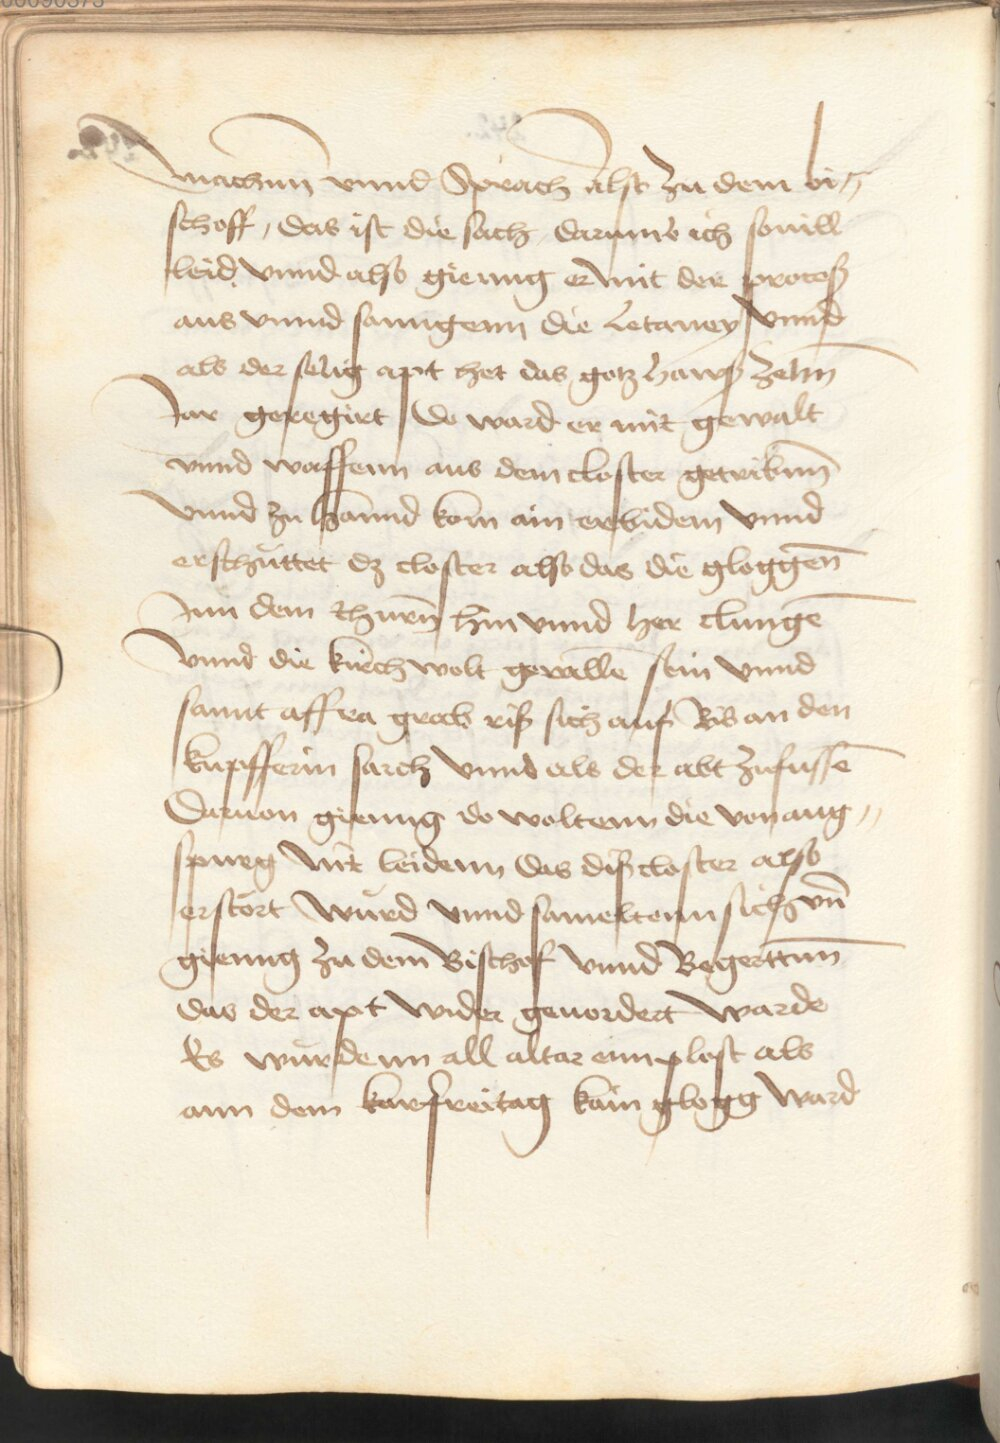 machnn vnnd Sprach also zu dem bi„
schoff, das ist die sach, darumb ich souill
leid vnnd also gienng er mit der proceß
aus vnnd sanngenn die Letaney vnnd
als der selig apt het das gotz hawß zehn
Jar geregirt Do ward er mit gewalt
vnnd waffenn aus dem closter getribnn
vnnd zu hannd kom ain erbidem vnnd
erschüttet dz closter also das die gloggen̄
Inn dem thurn̄ hin vnnd her clungē
vnnd die kirch wolt geuallē sein vnnd
sannt affra grab riß sich auf Bis an den
kupfferin sarch vnnd als der abt zufussē
Daruon gienng do woltenn die von aug„
spurg nit leidenn das diß closter also
erstört würd vnnd sameltenn sich vn̄
gienng zu dem Bischof vnnd Begertnn
das der apt wider geuordert warde
Es wurdenn all altar ennplost als
ann dem karfreitag kain glogg ward